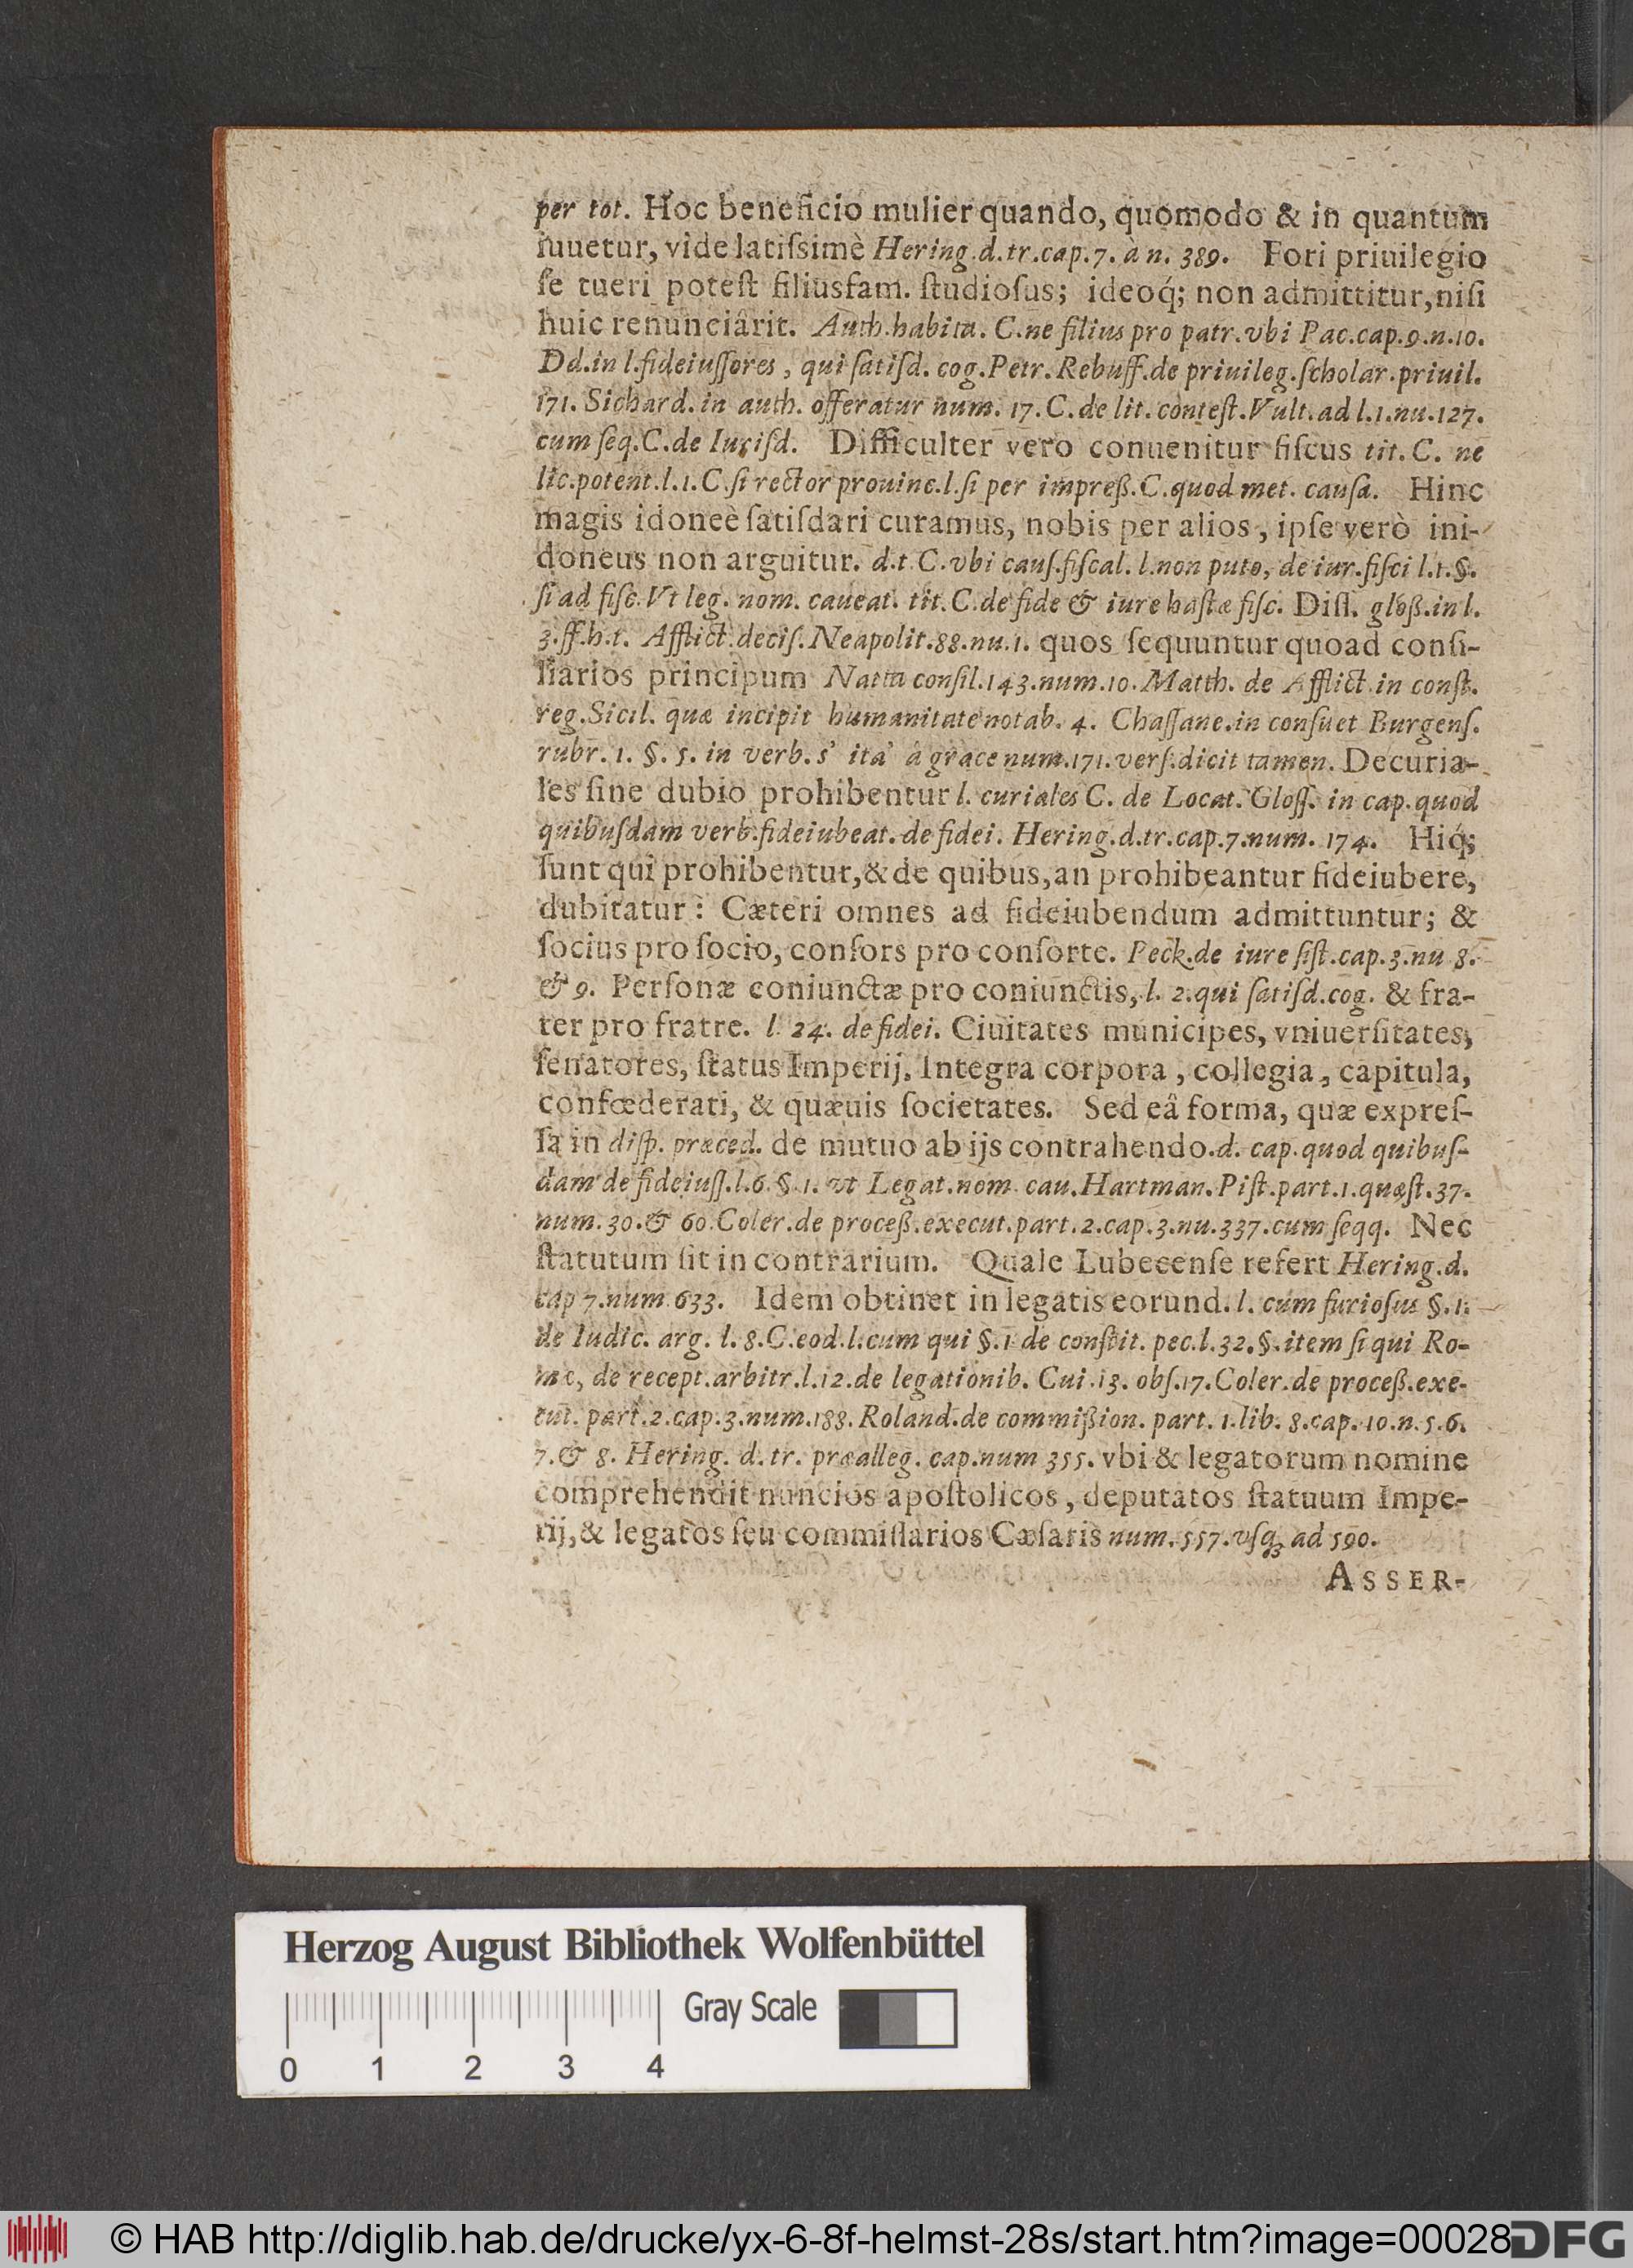 per tot. Hoc beneficio mulier quando, quomodo & in quantum
iuuetur, vide latiſsimè Hering.d.tr.cap.7. à n. 389. Fori priuilegio
ſe tueri poteſt filiusfam. ſtudioſus; ideoq́; non admittitur, niſi
huic renunciârit. Auth.habita. C.ne filius pro patr.vbi Pac.cap.9.n.10.
Dd.in l.fideiuſſores, qui ſatiſd. cog.Petr.Rebuff.de priuileg.ſcholar.priuil.
171. Sichard. in auth. offeratur num. 17.C.de lit. conteſt.Vult.ad l.1.nu.127.
cum ſeq.C.de Iuriſd. Difficulter vero conuenitur fiſcus tit. C. ne
lic.potent.l.1.C.ſi rector prouinc.l.ſi per impreß.C.quod met. cauſa. Hinc
magis idoneè ſatiſdari curamus, nobis per alios, ipſe verò ini-
doneus non arguitur. d.t.C.vbi cauſ.fiſcal. l.non puto, de iur.fiſci l.1.§.
ſi ad fiſc.Vt leg. nom. caueat. tit.C.de fide & iure haſtæ fiſc. Diſſ. gloß.in l.
3.ff.h.t. Afflict.deciſ.Neapolit.88.nu.1. quos ſequuntur quoad conſi-
liarios principum Natta conſil.143.num.10.Matth. de Afflict.in conſt.
reg.Sicil. quæ incipit humanitate notab. 4. Chaſſane.in conſuet Burgenſ.
rubr. 1. §. 5. in verb. s' ita' a grace num.171.verſ.dicit tamen. Decuria-
les ſine dubio prohibentur l. curiales C. de Locat. Gloſſ. in cap.quod
quibuſdam verb.fideiubeat.de fidei. Hering.d.tr.cap.7.num. 174. Hiq́;
ſunt qui prohibentur, & de quibus, an prohibeantur fideiubere,
dubitatur: Cæteri omnes ad fideiubendum admittuntur; &
ſocius pro ſocio, conſors pro conſorte. Peck.de iure ſiſt.cap.3.nu 8.
& 9. Perſonæ coniunctæ pro coniunctis, l. 2.qui ſatiſd.cog. & fra-
ter pro fratre. l. 24. de fidei. Ciuitates municipes, vniuerſitates,
ſenatores, ſtatus Imperij. Integra corpora, collegia, capitula,
confœderati, & quæuis ſocietates. Sed eâ forma, quæ expreſ-
ſa in diſp. præced. de mutuo ab ijs contrahendo.d. cap.quod quibuſ-
dam de fideiuſſ.l.6.§.1. vt Legat.nom. cau.Hartman.Piſt.part.1.quæſt.37.
num.30.& 60.Coler.de proceß.execut.part.2.cap.3.nu.337.cum ſeqq. Nec
ſtatutum ſit in contrarium. Quale Lubecenſe refert Hering.d.
cap 7.num.633. Idem obtinet in legatis eorund. l. cum furioſus §.1.
de Iudic. arg. l. 8.C.eod.l.cum qui §.1 de conſtit. pec.l.32.§.item ſi qui Ro-
mæ, de recept.arbitr.l.12.de legationib. Cui.13. obſ.17.Coler.de proceß.exe-
cut. part.2.cap.3.num.188.Roland.de commißion. part. 1.lib. 8.cap.10.n.5.6.
7.& 8. Hering. d. tr. præalleg. cap.num 355. vbi & legatorum nomine
comprehendit nuncios apoſtolicos, deputatos ſtatuum Impe-
rij, & legatos ſeu commiſſarios Cæſaris num.557.vſqꝫ ad 590.
ASSER-
Herzog August Bibliothek Wolfenbüttel
Gray Scale
0 1 2 3 4
© HAB http://diglib.hab.de/drucke/yx-6-8f-helmst-28s/start.htm?image=00028
DFG